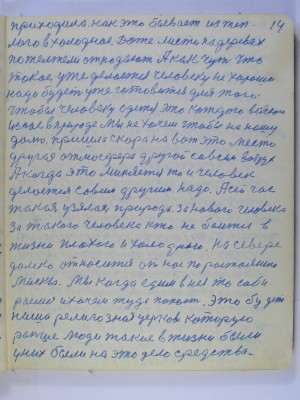 приходила. как это бывает из теп- 14
лого в холодное. Даже листи на деревах
пожелтели отпадают. А как чуть что
такое, уже делается человеку не хорошо
надо будет уже готовится для этого
чтобы человеку сдеть. Это каждого
в природе. Мы не хочем чтобы на нашу
долю пришла скора на вот это место
другая атмосфера другой совсем воздух
А когда это меняется то и человек
делается совсем другим надо. А сейчас
такая взялась природа за нового человека
за такого человека кто не боится в
жизни плохого и холодного. На севере
далеко относится от нас по растоянию
Масква. Мы когда едим в нее то соби-
раемся и хочем туда попасть. Это будет
наша религозная церков которую
раньше люди такие в жизни были
у них были на это дело средства.